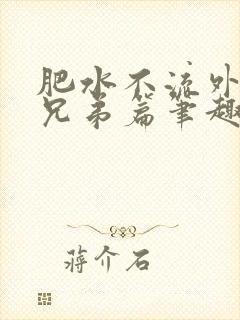 肥水不流外
兄弟篇笔趣
蒋介石